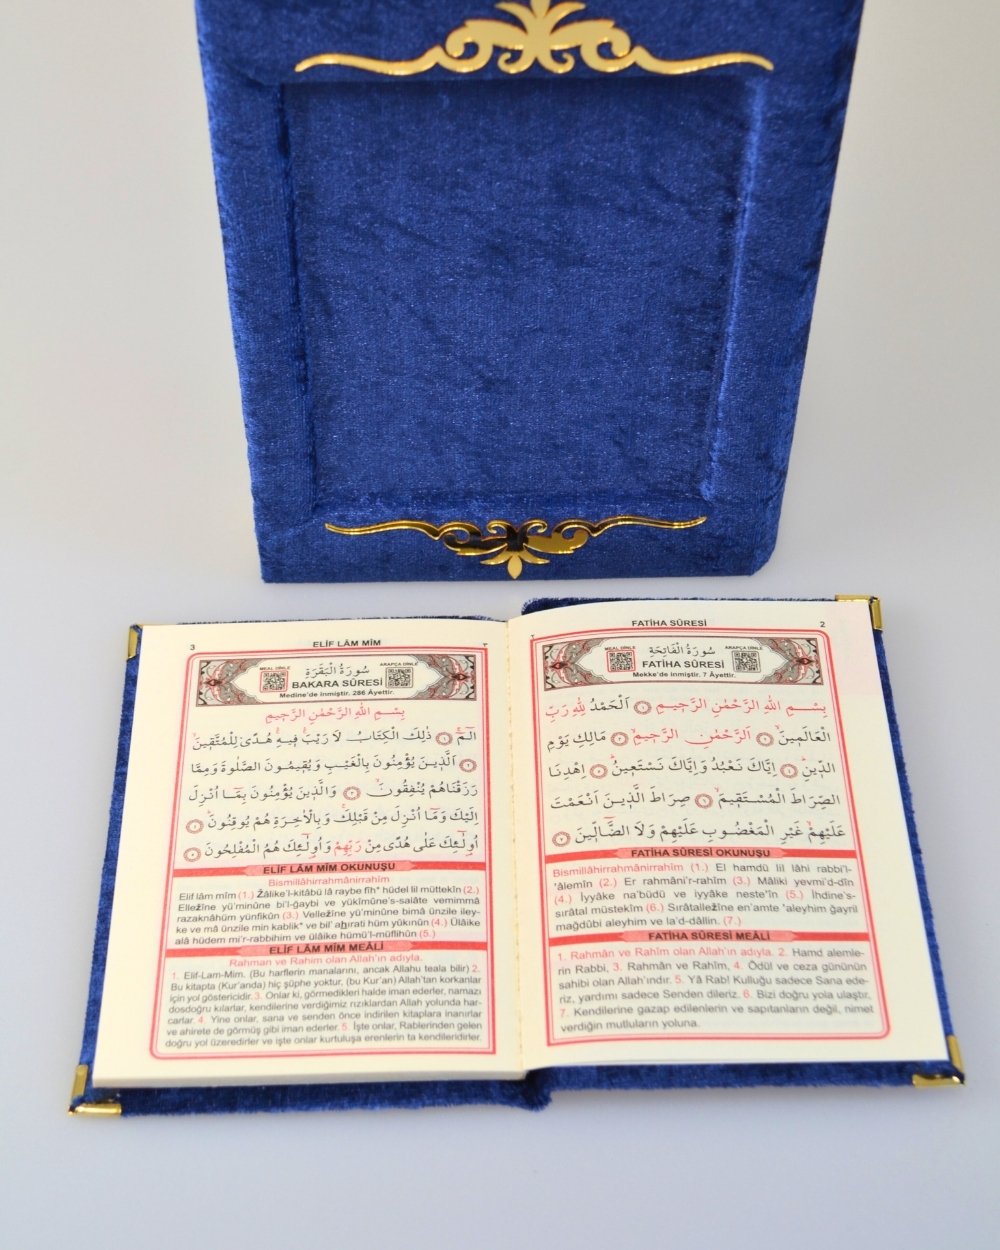 3
ELİF LÂM MÎM
٣
MEAL DİNLE
ARAPÇA DİNLE
سُورَةُ الْبَقَرَةِ
BAKARA SÛRESİ
Medine'de inmiştir. 286 Âyettir.
بِسْمِ اللهِ الرَّحْمٰنِ الرَّحِيمِ
الٓمٓ ۚ ﴿١﴾ ذٰلِكَ الْكِتَابُ لَا رَيْبَ ۚ فِيهِ ۚ هُدًى لِلْمُتَّقِينَ ۙ
﴿٢﴾ اَلَّذِينَ يُؤْمِنُونَ بِالْغَيْبِ وَيُقِيمُونَ الصَّلٰوةَ وَمِمَّا
رَزَقْنَاهُمْ يُنْفِقُونَ ۙ ﴿٣﴾ وَالَّذِينَ يُؤْمِنُونَ بِمَٓا اُنْزِلَ
اِلَيْكَ وَمَٓا اُنْزِلَ مِنْ قَبْلِكَ ۚ وَبِالْاٰخِرَةِ هُمْ يُوقِنُونَ ۜ ﴿٤﴾
اُو۬لٰٓئِكَ عَلٰى هُدًى مِنْ رَبِّهِمْ وَاُو۬لٰٓئِكَ هُمُ الْمُفْلِحُونَ ﴿٥﴾
ELİF LÂM MÎM OKUNUŞU
Bismillâhirrahmânirrahîm
Elif lâm mîm (1.) Žâlike'l-kitâbü lâ raybe fîh* hüdel lil müttekîn (2.)
Elležîne yü'minûne bi'l-ğaybi ve yükîmûne's-salâte vemimmâ
razaknâhüm yünfikûn (3.) Velležîne yü'minûne bimâ ünzile iley-
ke ve mâ ünzile min kablik* ve bil' aḫirati hüm yûkınûn (4.) Ülâike
alâ hüdem mi'r-rabbihim ve ülâike hümü'l-müflihûn (5.)
ELİF LÂM MÎM MEÂLİ
Rahman ve Rahim olan Allah'ın adıyla.
1. Elif-Lam-Mim. (Bu harflerin manalarını, ancak Allahu teala bilir) 2.
Bu kitapta (Kur'anda) hiç şüphe yoktur, (bu Kur'an) Allah'tan korkanlar
için yol göstericidir. 3. Onlar ki, görmedikleri halde iman ederler, namazı
dosdoğru kılarlar, kendilerine verdiğimiz rızıklardan Allah yolunda har-
carlar. 4. Yine onlar, sana ve senden önce indirilen kitaplara inanırlar
ve ahirete de görmüş gibi iman ederler. 5. İşte onlar, Rablerinden gelen
doğru yol üzeredirler ve işte onlar kurtuluşa erenlerin ta kendileridirler.
٢
FATİHA SÛRESİ
2
MEAL DİNLE
ARAPÇA DİNLE
سُورَةُ الْفَاتِحَةِ
FATİHA SÛRESİ
Mekke'de inmiştir. 7 Âyettir.
بِسْمِ اللهِ الرَّحْمٰنِ الرَّحِيمِ ﴿١﴾ اَلْحَمْدُ لِلّٰهِ رَبِّ
الْعَالَمِينَ ۙ ﴿٢﴾ اَلرَّحْمٰنِ الرَّحِيمِ ۙ ﴿٣﴾ مَالِكِ يَوْمِ
الدِّينِ ۜ ﴿٤﴾ اِيَّاكَ نَعْبُدُ وَاِيَّاكَ نَسْتَعِينُ ۜ ﴿٥﴾ اِهْدِنَا
الصِّرَاطَ الْمُسْتَقِيمَ ۙ ﴿٦﴾ صِرَاطَ الَّذِينَ اَنْعَمْتَ
عَلَيْهِمْ ۙ غَيْرِ الْمَغْضُوبِ عَلَيْهِمْ وَلَا الضَّٓالِّينَ ﴿٧﴾
FATİHA SÛRESİ OKUNUŞU
Bismillâhirrahmânirrahîm (1.) El hamdü lil lâhi rabbi'l-
'âlemîn (2.) Er rahmâni'r-rahîm (3.) Mâliki yevmi'd-dîn
(4.) İyyâke na'büdü ve iyyâke neste'în (5.) İhdine's-
sırâtal müstekîm (6.) Sırâtalležîne en'amte 'aleyhim ğayril
mağdûbi aleyhim ve la'd-dâllin. (7.)
FATİHA SÛRESİ MEÂLİ
1. Rahmân ve Rahîm olan Allah'ın adıyla. 2. Hamd alemle-
rin Rabbi, 3. Rahmân ve Rahîm, 4. Ödül ve ceza gününün
sahibi olan Allah'ındır. 5. Yâ Rab! Kulluğu sadece Sana ede-
riz, yardımı sadece Senden dileriz. 6. Bizi doğru yola ulaştır,
7. Kendilerine gazap edilenlerin ve sapıtanların değil, nimet
verdiğin mutluların yoluna.